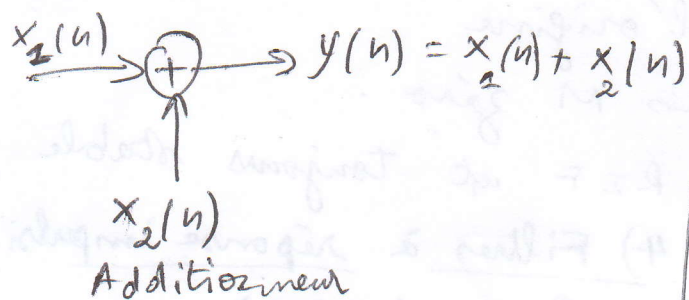 x₁(n) + y(n) = x₁(n) + x₂(n)
x₂(n)
Additionneur